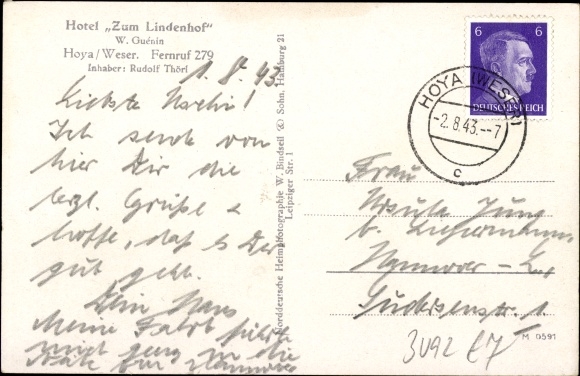 Hotel „Zum Lindenhof"
W. Guénin
Hoya/Weser. Fernruf 279
Inhaber: Rudolf Thörl
1.8.43.
Liebste
Ich sende von
hier Dir die
herzl. Grüße &
hoffe, daß es Dir
gut geht.
Dein Hans
Meine Fahrt führte
mich ganz in die
Norddeutsche Heimatphotographie W. Bindseil & Sohn, Hamburg 21
Leipziger Str. 1
6 6
DEUTSCHES REICH
HOYA (WESER)
-2.8.43.--7
c
Frau
Ursula Jung
b.
Hannover
1
M 0591
3092 £7